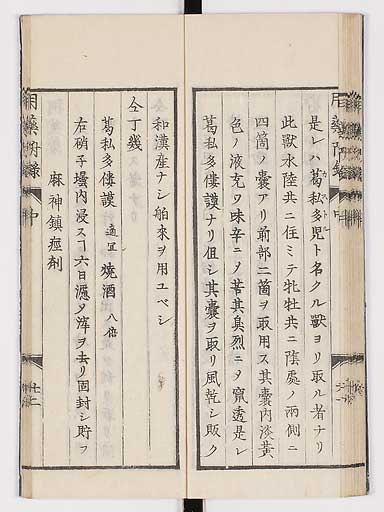 是レハ葛私多兒ト名クル獸ヨリ取ル者ナリ
此獸水陸共ニ住ミテ牝牡共ニ陰處ノ兩側ニ
四箇ノ囊アリ前部二箇ヲ取用ス其囊内淡黄
色ノ液充ツ味辛ニ乄苦其臭烈ニ乄竄透是レ
葛私多僂謨ナリ但シ其囊ヲ取リ風乾シ販ク
和漢産ナシ舶來ヲ用ユベシ
仝丁幾
葛私多僂謨 適宜 燒酒 八倍
右硝子壜内浸スヿ六日漉タ滓ヲ去リ固封シ貯フ
麻神鎮痙劑